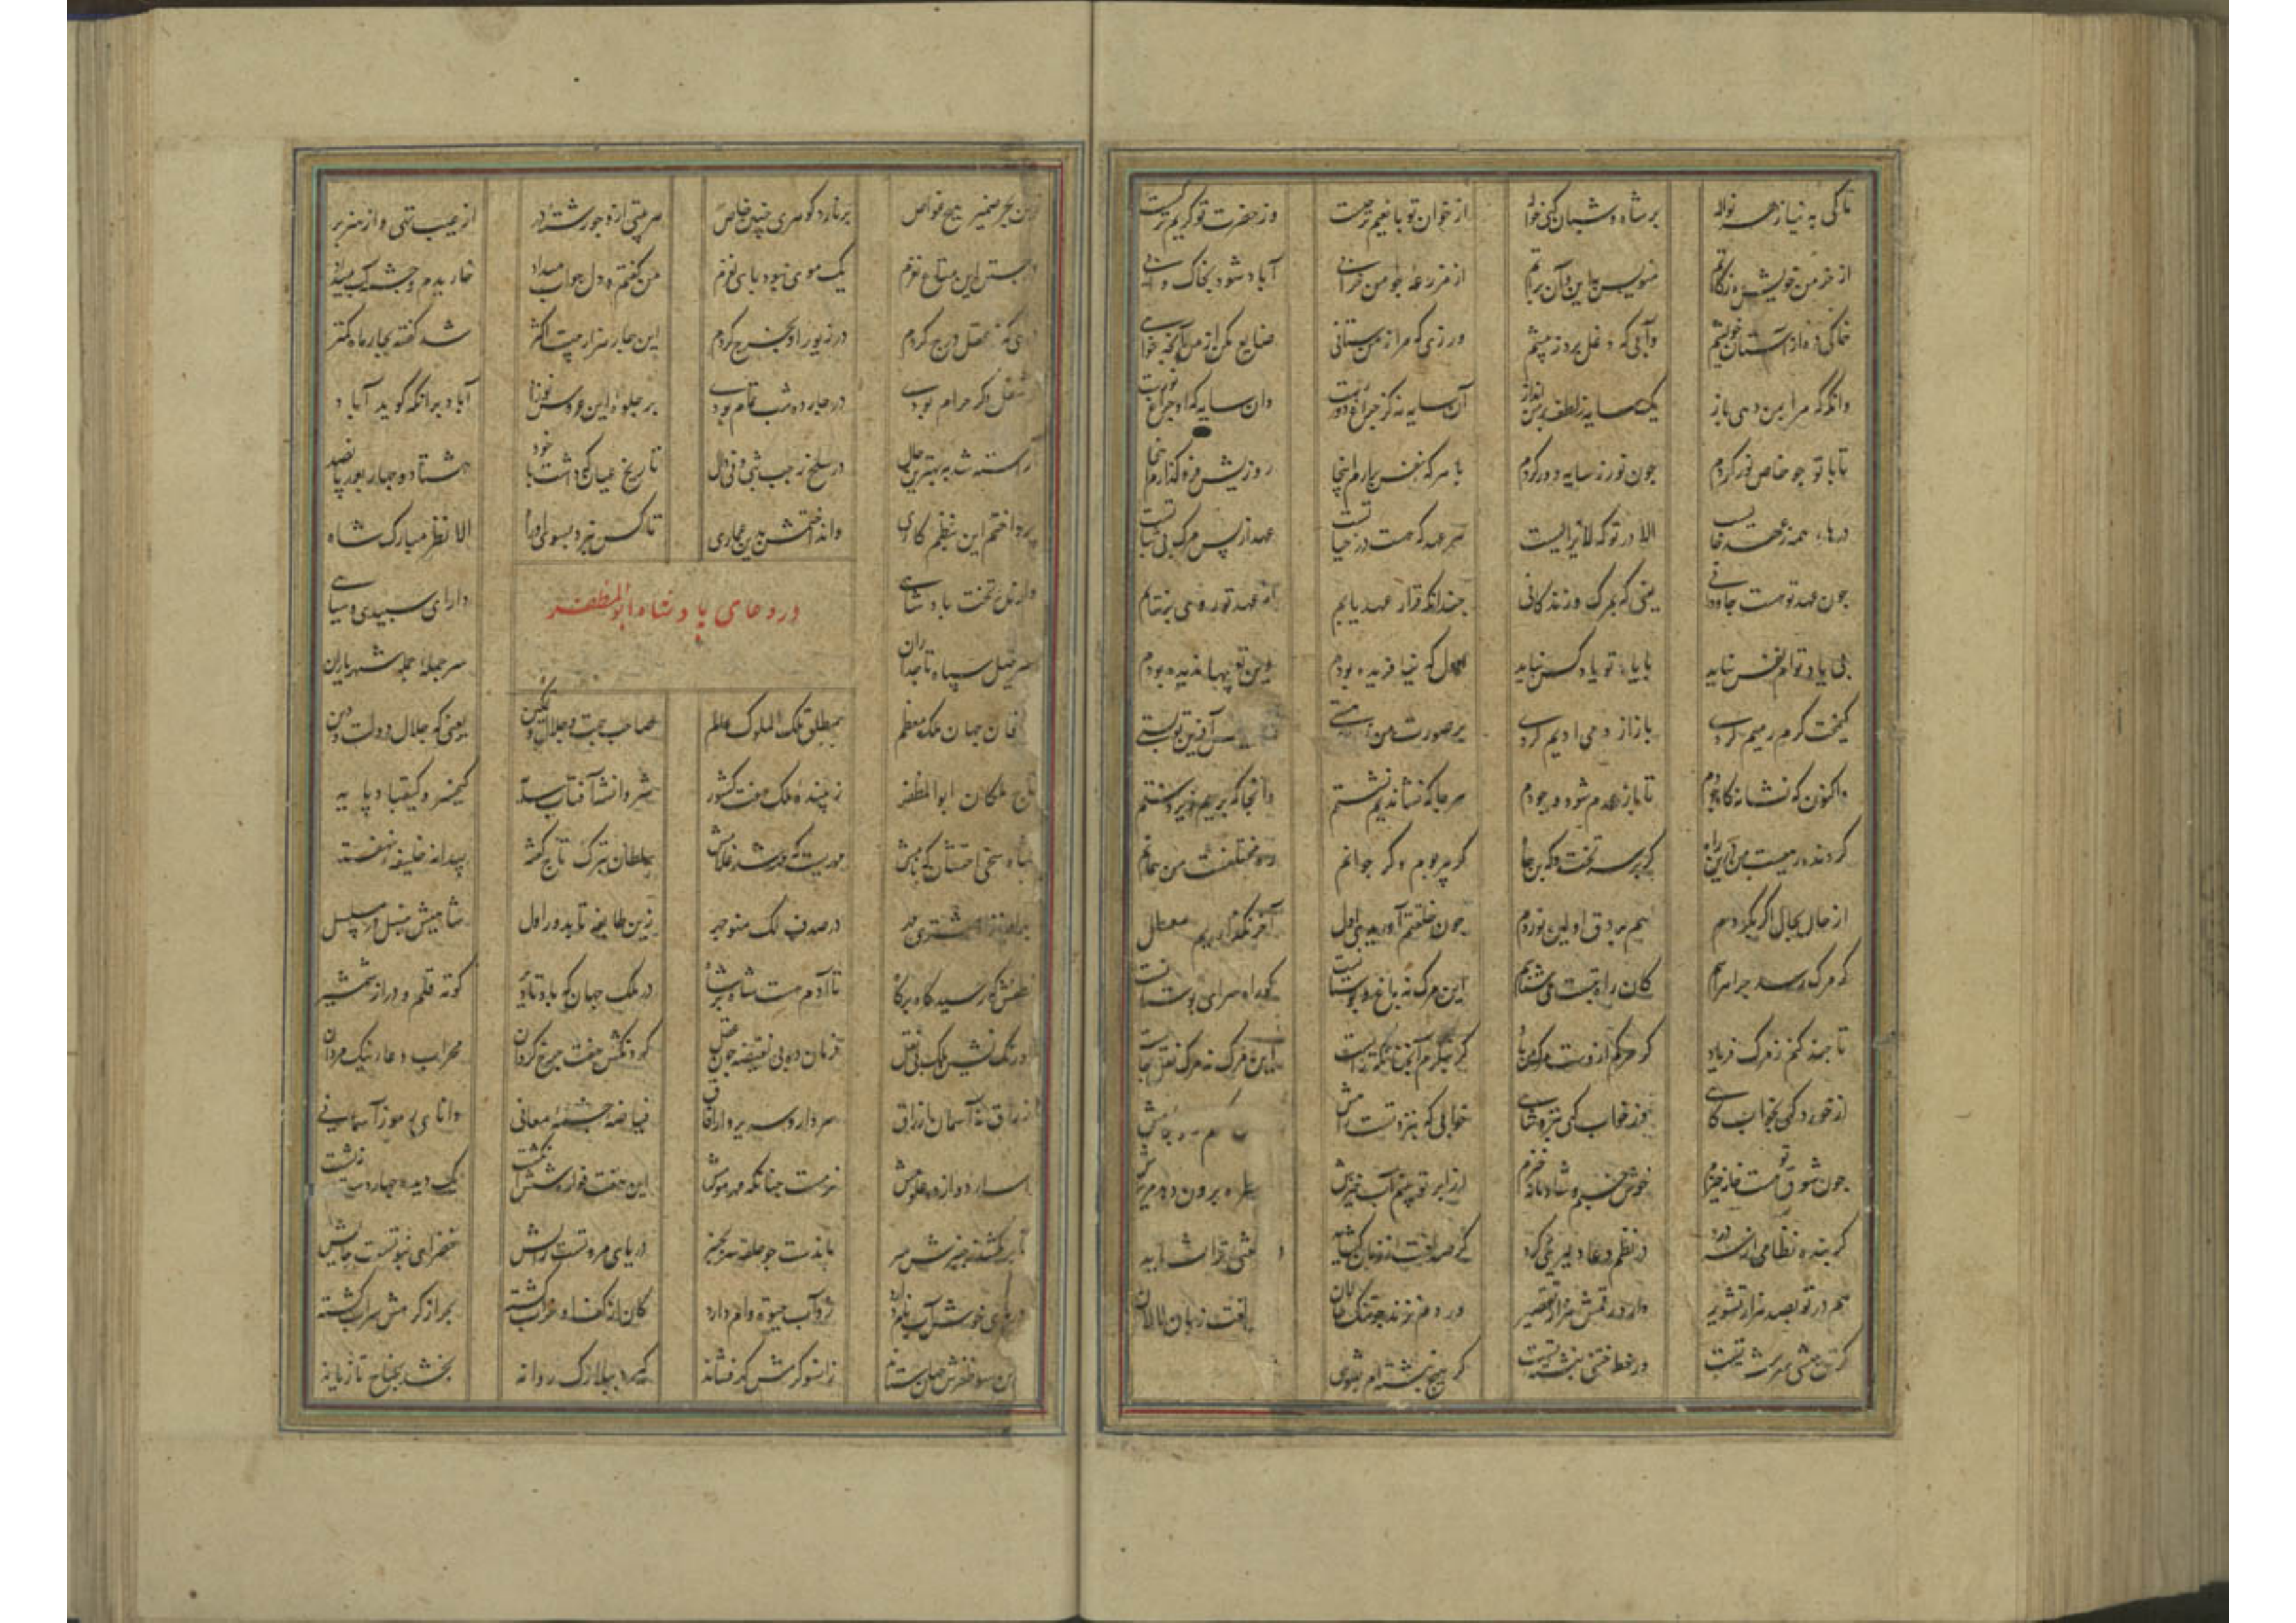 تا کی به نیاز هر نواله بر شاه و شبان کنی حواله از خوان تو با نعیم تر چیست وز حضرت تو کریم تر کیست
از خرمن خویش ده زکاتم منویس باین و آن براتم از مزرعه چو من خرابی آباد شود بخاک و آبی
خاکی ده از آستان خویشم وآبی که دغل برد ز پیشم روزی که مرا ز من ستانی ضایع مکن از من آنچه
وانگه که مرا بمن دهی باز یک سایه ز لطف بر من انداز آن سایه نه کز چراغ دورست وان سایه که او چراغ نورست
تا با تو چو خاص نور گردم چون نور ز سایه دور گردم با هر که نفس برآرم اینجا روزیش فرو گذارم اینجا
درهاء همه ز عهد خالیست الا در تو که لایزالیست هر عهد که هست در حیاتست عهد از پس مرگ بی ثباتست
چون عهد تو هست جاودانی یعنی که بمرگ و زندکانی چندانکه قرار عهد یابم از عهد تو روی برنتابم
بی یاد توام نفس نیاید با یاد تو یاد کس نیاید اول که نیافریده بودم وین تعبیها ندیده بودم
کیمخت گرم زمیم کردی باز از زمی ادیم کردی بر صورت من آفرین تو بستی
واکنون که نشانه گاه جودم تا باز عدم شود وجودم هر جا که نشاندیم نشستم وانجا که بریم زیر دستم
گردنده رهیت من درین راه گه بر سر تخت و گه بن چاه گر پیر بوم و گر جوانم ره مختلفست من همانم
از حال بحال اگر بگردم هم بر ورق اولین نوردم چون خلقتم آوریدی اول آخر نگذاریم معطل
گر مرگ رسد چرا هراسم کان راه بتست می شناسم این مرگ نه باغ و بوستانست کو راه سرای
تا چند کنم ز مرگ فریاد مرگ ازوست مرگ من باد گر بنگرم آنچنانکه رایست این مرگ نه مرگ نقل جایست
از خورد گهی بخواب گاهی وز خواب گهی ببزم شاهی خوابی که ببزم تست راهش
چون شوق تو هست خانه خیزم خوش خسبم و شادمانه خیزم آب خیزش قطره برون دهد مریزش
گر بنده نظامی از سر درد در نظم دعا دلیریی کرد گر صد لغت از زبان گشاید
هم در تو بصد هزار تشویر دارد رقمش هزار تقصیر ور دم نزند چو تنگ حالان لغت زبان لالان
گر تن حبشی سرشته تست ور خط ختنی نبشته تست گر هیچ نبشته ام بشوی
زین بحر ضمیر هیچ غواص برنارد گوهری چنین خاص هر بیتی ازو چو رشته در از عیب تهی و از هنر پر
در جستن این متاع نغزم یک موی نبود پای لغزم من گفتم و دل جواب میداد خاریدم و چشمه آب میداد
دخلی که ز عقل درج کردم در زیور او بخرج کردم این چار هزار بیت اکثر شد گفته بچار ماه کمتر
شغل دگر حرام بودی در چارده شب تمام بودی بر جلوه این عروس آباد برآنکه گوید آباد
آراسته شد ببهترین حال در سلخ رجب بثی و فی دال تاریخ عیان که داشت با خود هشتاد و چهار بعد پانصد
پرداختم این بنظم کاری وانداختمش بدین عماری تا کس نبرد بسوی او راه الا نظر مبارک شاه
در دعای پادشاه ابوالمظفر
تخت پادشاهی دارای سپیدی و سیاهی
سرخیل سپاه تاجداران سر جمله جمله شهریاران
خاقان جهان ملک معظم مطلق ملک الملوک عالم صاحب جهت و جلال و تمکین یعنی که جلال دولت و دین
تاج ملکان ابوالمظفر زیبنده ملک هفت کشور شروانشه آفتاب سایه کیخسرو کیقباد پایه
شاه سخی احتشان که نامش مهریست که مهر شد غلامش سلطان بترک تاج گفته پیدانه خلیفه نهفته
بهرام نژاد و مشتری چهر در صدف ملک منوچهر زین طایفه تا بدور اول شاهیش بنسل در مسلسل
نطفش که رسیده گاه بر گاه تا آدم هست شاه بر شاه در ملک جهان که باد تا دیر کوته قلم و دراز شمشیر
اورنگ نشین ملک بی نقل فرمان ده بی نقیصه چون عقل گردنکش هفت چرخ گردان محراب دعای نیک مردان
رزاق نه آسمان ارزاق سردار و سریر دار آفاق فیاضه چشمه معانی دانای رموز آسمانی
اسرار دوازده علومش نرمست چنانکه مهر مومش این هفت قواره شش انگشت یک دیده چهار دست و نه پشت
تا بر نکشد ز چنبرش سر ماندست چو حلقه سر بچنبر دریای مروتست رایش خضرای نبوتست جایش
آب نام دارد زو آب حیوة وام دارد کان از کف او خراب گشته بحر از کرمش سراب گشته
این سو ظفرش جهان ستاند زانسو کرمش گهر فشاند گیرد ببلارک روانه بخشد بجناح تازیانه